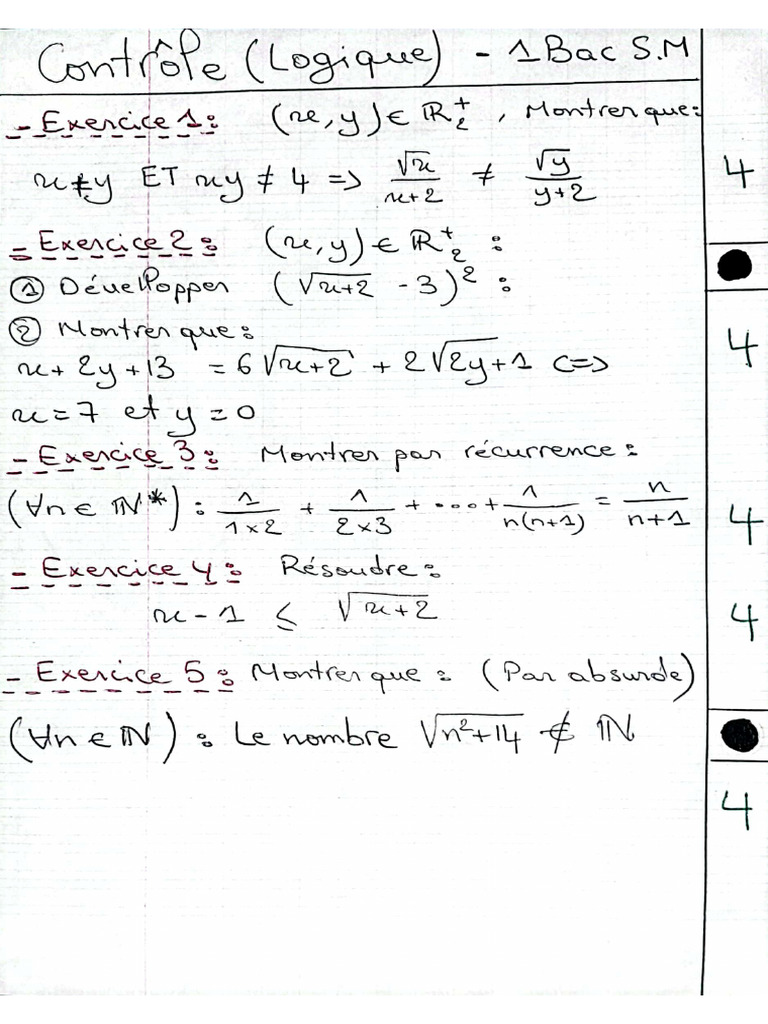 Contrôle (Logique) - 1 Bac S.M
- Exercice 1 : (x, y) ∈ ℝ₂⁺ , Montrer que :
x ≠ y ET xy ≠ 4 => √x/(x+2) ≠ √y/(y+2)
4
- Exercice 2 : (x, y) ∈ ℝ₂⁺ :
① Développer (√(x+2) - 3)² :
② Montrer que :
x + 2y + 13 = 6√(x+2) + 2√(2y+1) <=>
4
x = 7 et y = 0
- Exercice 3 : Montrer par récurrence :
(∀n ∈ ℕ*) : 1/(1×2) + 1/(2×3) + ... + 1/(n(n+1)) = n/(n+1)
4
- Exercice 4 : Résoudre :
x - 1 ≤ √(x+2)
4
- Exercice 5 : Montrer que : (Par absurde)
(∀n ∈ ℕ) : Le nombre √(n²+14) ∉ ℕ
4